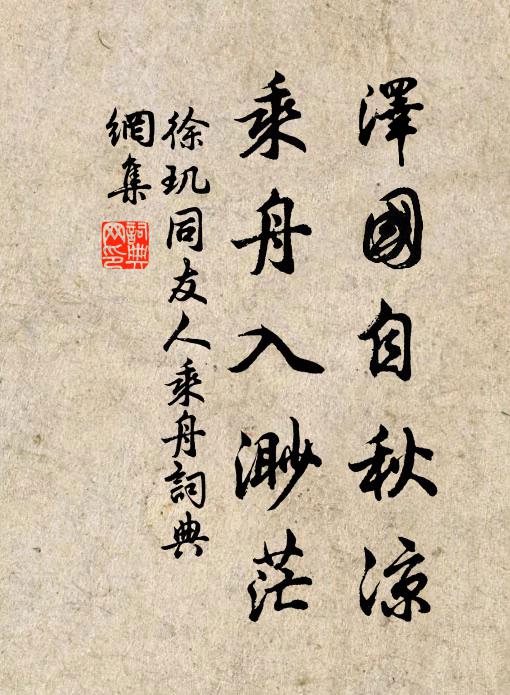 澤國自秋凉
乘舟入渺茫
徐玑同友人乘舟詞典
網集
詞典
网印